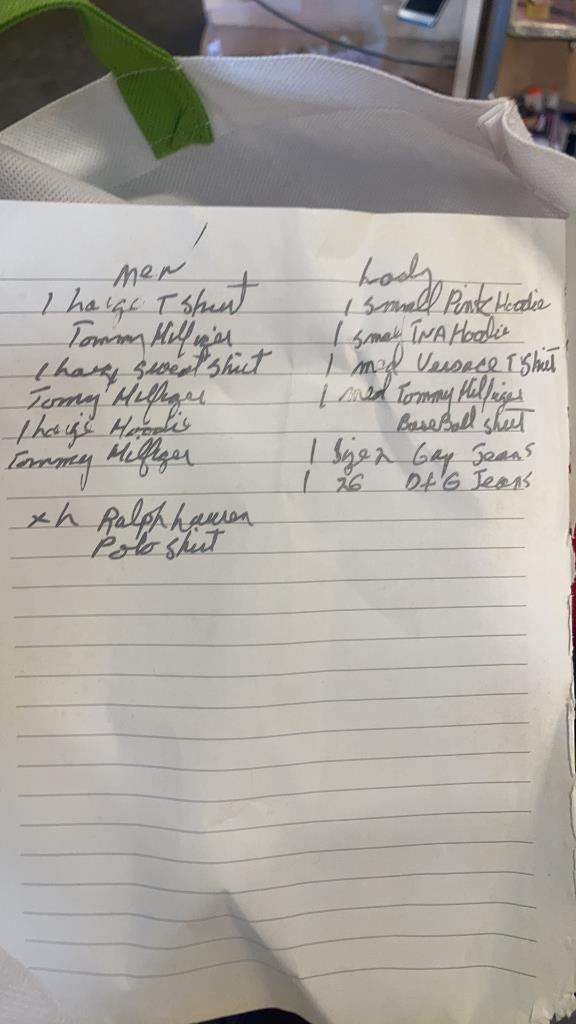 Men
1 Large T Shirt
Tommy Hilfiger
1 Large Sweat Shirt
Tommy Hilfiger
1 Large Hoodie
Tommy Hilfiger
XL Ralph Lauren
Polo Shirt
Lady
1 Small Pink Hoodie
1 Small TNA Hoodie
1 med Versace T Shirt
1 med Tommy Hilfiger
BaseBall shirt
1 Size 2 Gap Jeans
1 26 D+G Jeans